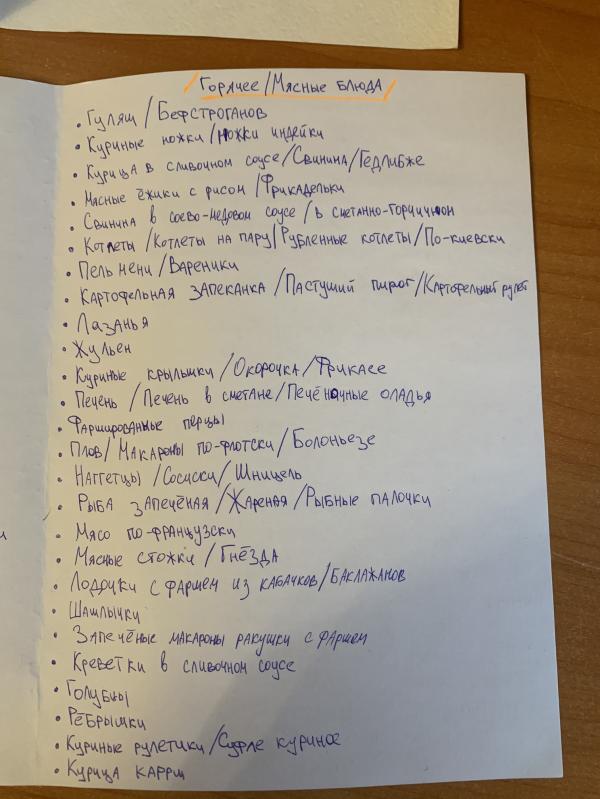 /Горячее/Мясные блюда/
• Гуляш/Бефстроганов
• Куриные ножки/ножки индейки
• Курица в сливочном соусе/Свинина/Гедлибже
• Мясные ёжики с рисом/Фрикадельки
• Свинина в соево-медовом соусе/в сметанно-горчичном
• Котлеты/Котлеты на пару/Рубленные котлеты/По-киевски
• Пельмени/Вареники
• Картофельная запеканка/Пастуший пирог/Картофельный рулет
• Лазанья
• Жульен
• Куриные крылышки/Окорочка/Фрикасе
• Печень/Печень в сметане/Печёночные оладья
• Фаршированные перцы
• Плов/Макароны по-флотски/Болоньезе
• Наггетцы/Сосиски/Шницель
• Рыба запечёная/Жареная/Рыбные палочки
• Мясо по-французски
• Мясные стожки/Гнёзда
• Лодочки с фаршем из кабачков/Баклажанов
• Шашлычки
• Запечёные макароны ракушки с фаршем
• Креветки в сливочном соусе
• Голубцы
• Рёбрышки
• Куриные рулетики/Суфле куриное
• Курица карри